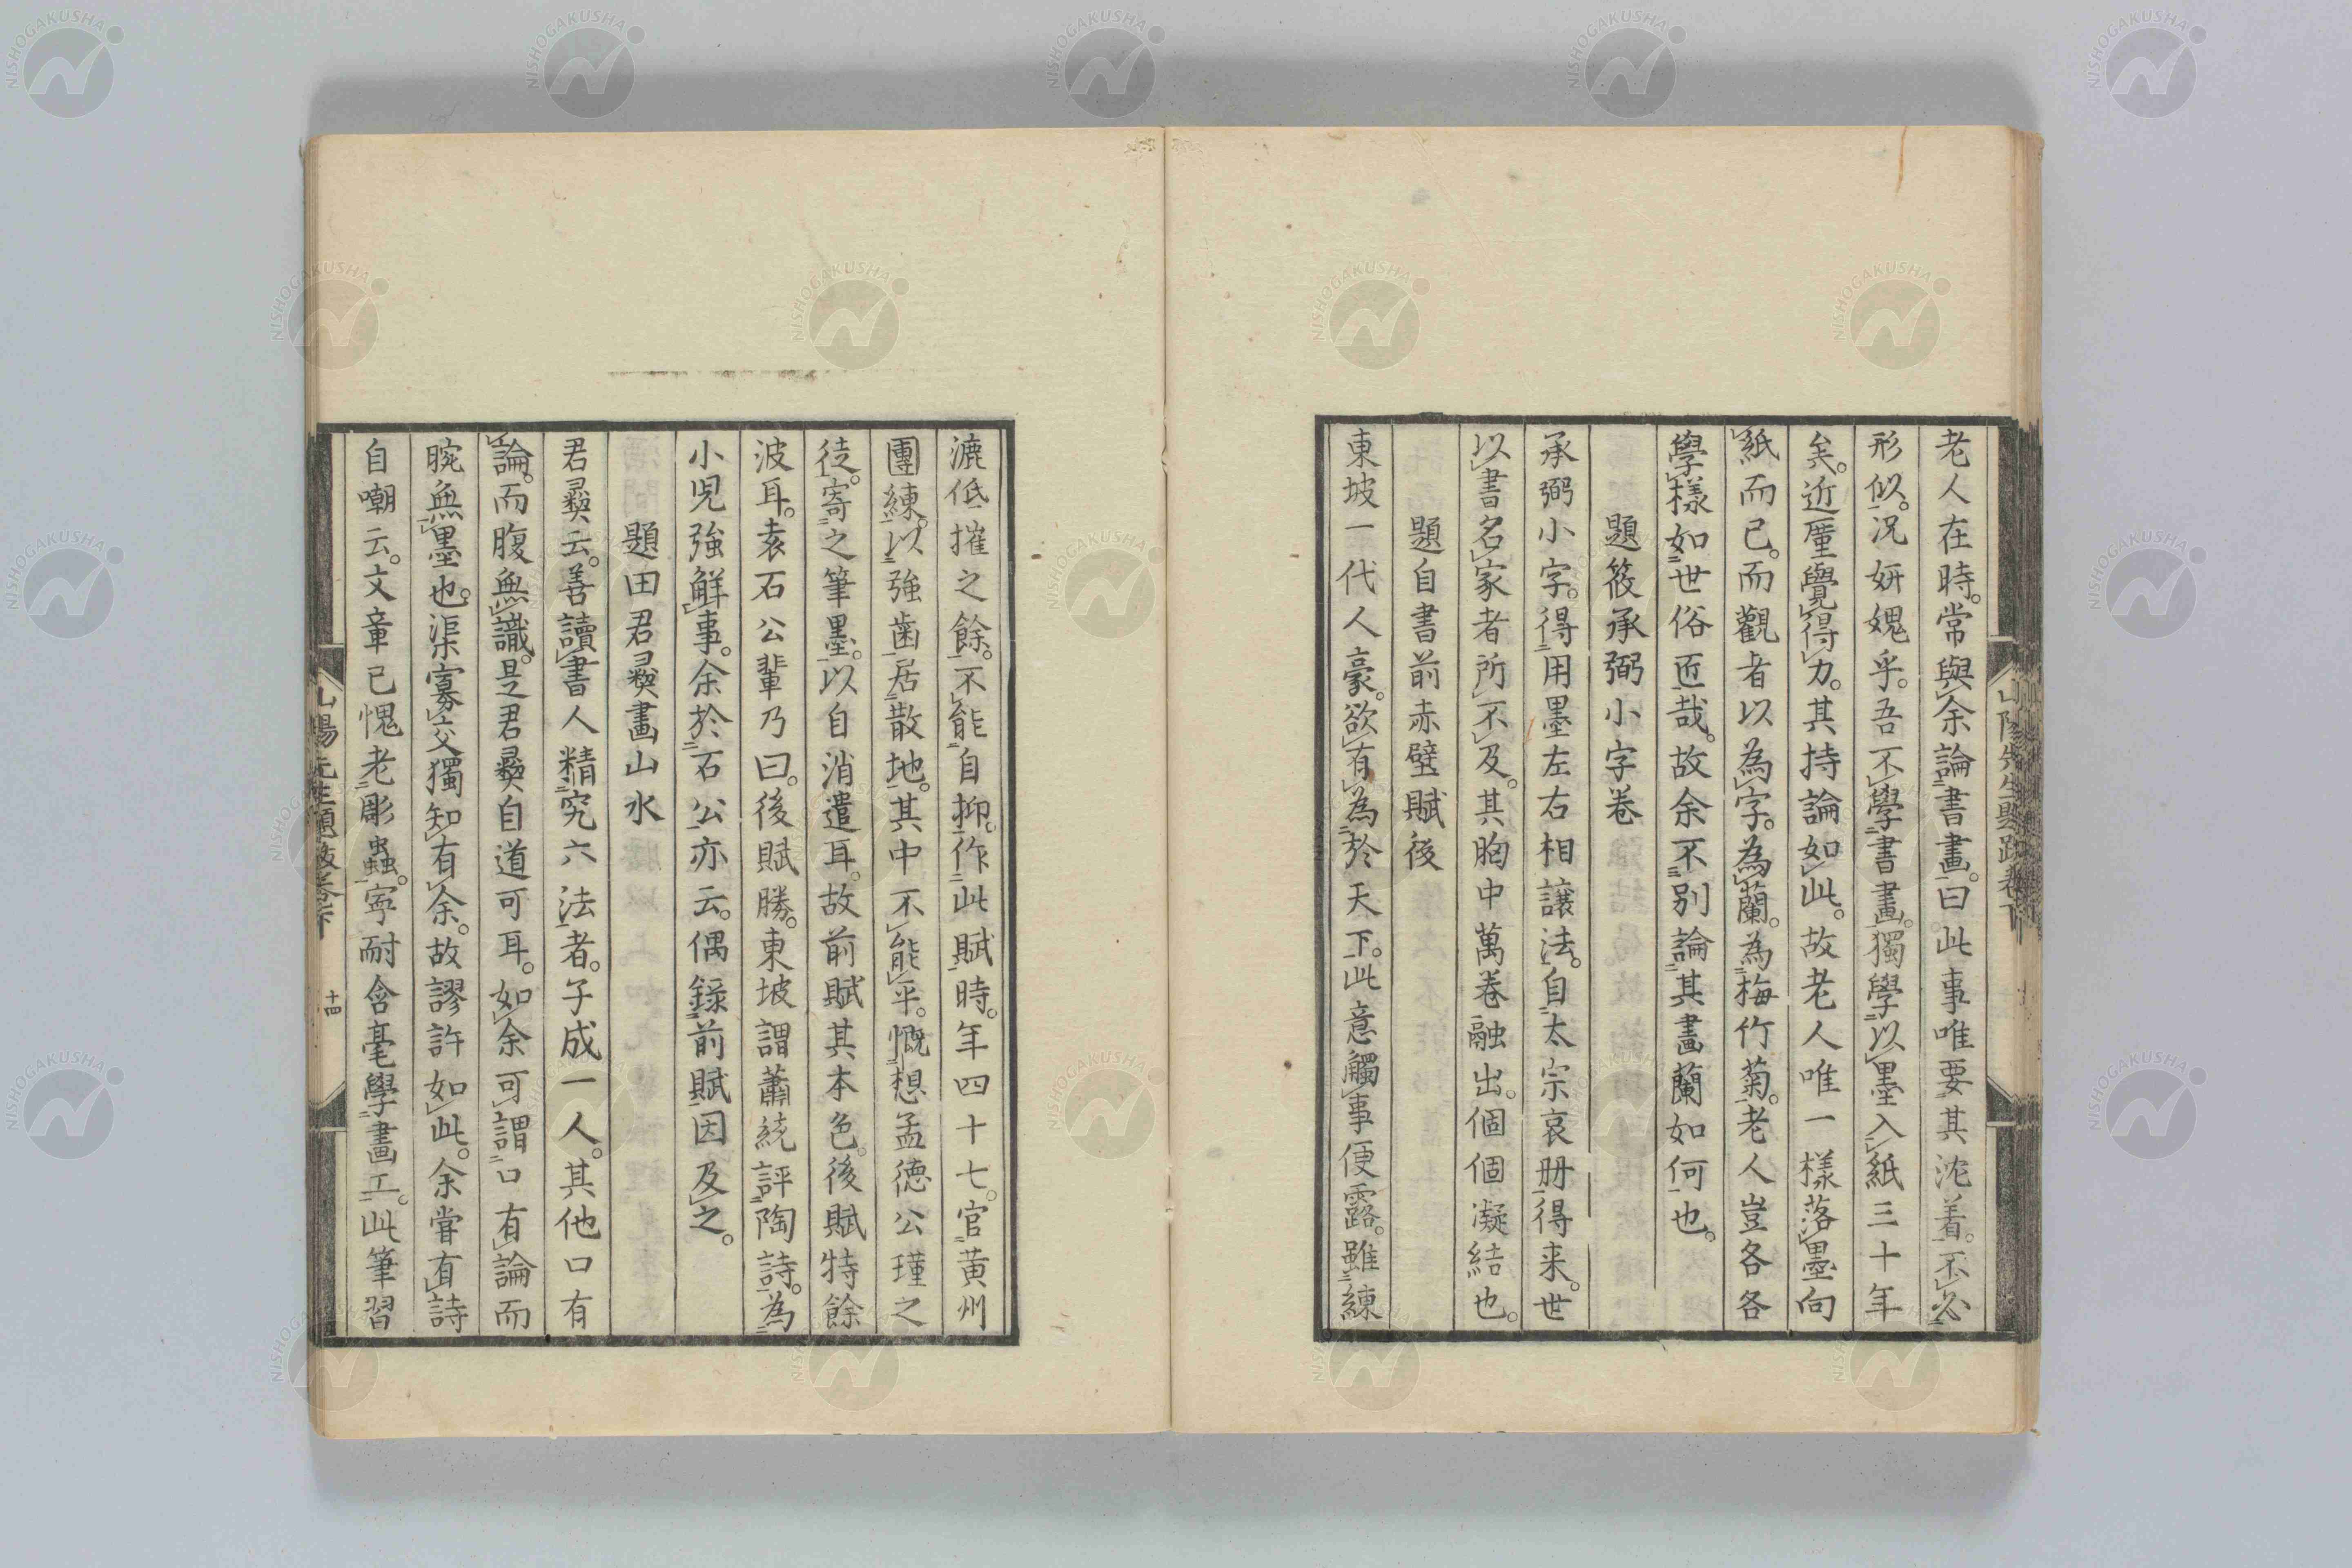 老人在時。常與余論書畫。曰此事唯要其沈着。不必
形似。况妍媸乎。吾不學書畫。獨學以墨入紙三十年
矣。近厪覺得力。其持論如此。故老人唯一樣落墨向
紙而已。而觀者以為字。為蘭。為梅竹菊。老人豈各各
學樣如世俗匠哉。故余不別論其畫蘭如何也。
題筱承弼小字卷
承弼小字。得用墨左右相讓法。自太宗哀册得来。世
以書名家者所不及。其胸中萬卷融出。個個凝結也。
題自書前赤壁賦後
東坡一代人豪。欲有為於天下。此意觸事便露。雖練
漉低摧之餘。不能自抑。作此賦時。年四十七。官黄州
團練。以強齒居散地。其中不能平。慨想孟徳公瑾之
徒。寄之筆墨。以自消遣耳。故前賦其本色。後賦特餘
波耳。袁石公輩乃曰。後賦勝。東坡謂蕭統評陶詩。為
小児強解事。余於石公亦云。偶録前賦因及之。
題田君彝畫山水
君彝云。善讀書人精究六法者。子成一人。其他口有
論。而腹無識。是君彝自道可耳。如余可謂口有論而
腕無墨也。渠寡交獨知有余。故謬許如此。余嘗有詩
自嘲云。文章已愧老彫蟲。寧耐含毫學畫工。此筆習
山陽先生題跋卷下
十四
山陽先生題跋卷下
NISHOGAKUSHA